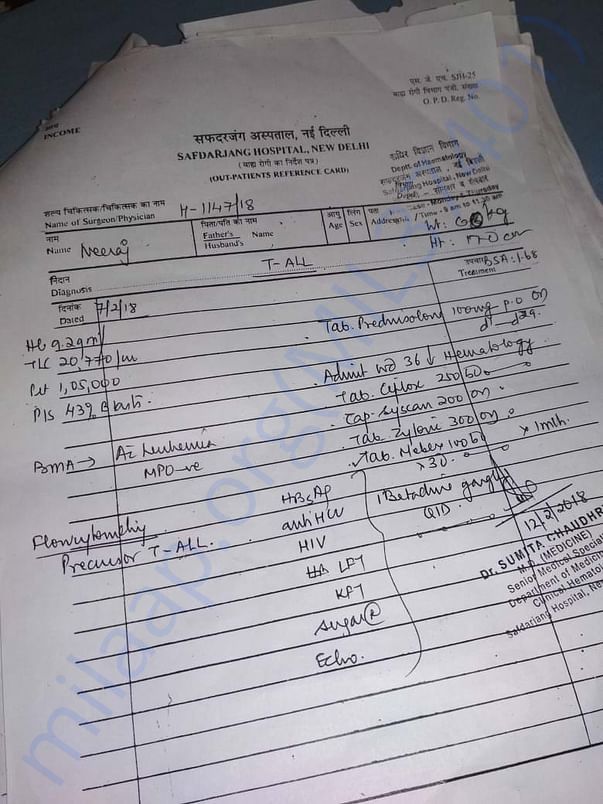 एस. जे. एच. SJH-25
बाह्य रोगी विभाग पंजी. संख्या
O. P. D. Reg. No.
आय
INCOME
सफदरजंग अस्पताल, नई दिल्ली
SAFDARJANG HOSPITAL, NEW DELHI
(बाह्य रोगी का निर्देश पत्र)
(OUT-PATIENTS REFERENCE CARD)
रूधिर विज्ञान विभाग
Deptt. of Haematology
सफदरजंग अस्पताल, नई दिल्ली
Safdarjang Hospital, New Delhi
शल्य चिकित्सक/चिकित्सक का नाम
Name of Surgeon/Physician
H-1147/18
Monday & Thursday
Time - 9 am to 11.30 am
नाम
Name Neeraj
पिता/पति का नाम
Father's
Husband's Name
आयु
Age
लिंग
Sex
पता
Address
Wt: kg
Ht: 170 cm
निदान
Diagnosis
T-ALL
उपचार
Treatment
BSA: 1.68
दिनांक
Dated
7/2/18
Hb 9.2gm/
TLC 20,770/
Plt 1,05,000
P/S 43% Blasts.
Tab. Prednisolone 100mg P.O OD
Admit Wd 36 ↓ Hematology
Tab. Ciplox 250 BD
Cap. Syscan 200 OD
Tab. Zyloric 300 OD
Tab. Mebex 100 BD
x 3D.
x 1mth.
BMA → Leukemia
MPO -ve
Flowcytometry
Precursor T-ALL.
HBsAg
anti HCV
HIV
LFT
KFT
Sugar R
Echo.
Betadine gargle
QID
12/2/2018
Dr. SUMITA CHAUDHR
M.D. (MEDICINE)
Senior Medical Special
Department of Medicine
Clinical Hematol
Safdarjang Hospital, New
milaap.org